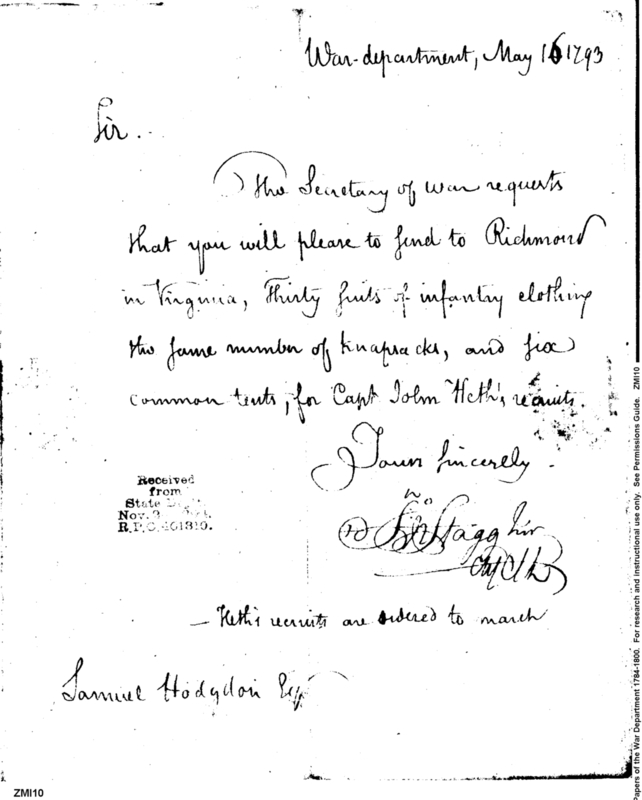 War-department, May 16 1793
Sir.
The Secretary of war requests
that you will please to send to Richmond
in Virginia, Thirty suits of infantry clothing
the same number of Knapsacks, and six
common tents, for Capt John Heth's recruits.
Yours Sincerely.
Jn Stagg Jnr
Received
from
State
Nov.
R.P.C. 401319.
— Heth's recruits are ordered to march
Samuel Hodgdon Esqr
ZMI10
Papers of the War Department 1784-1800. For research and instructional use only. See Permissions Guide. ZMI10